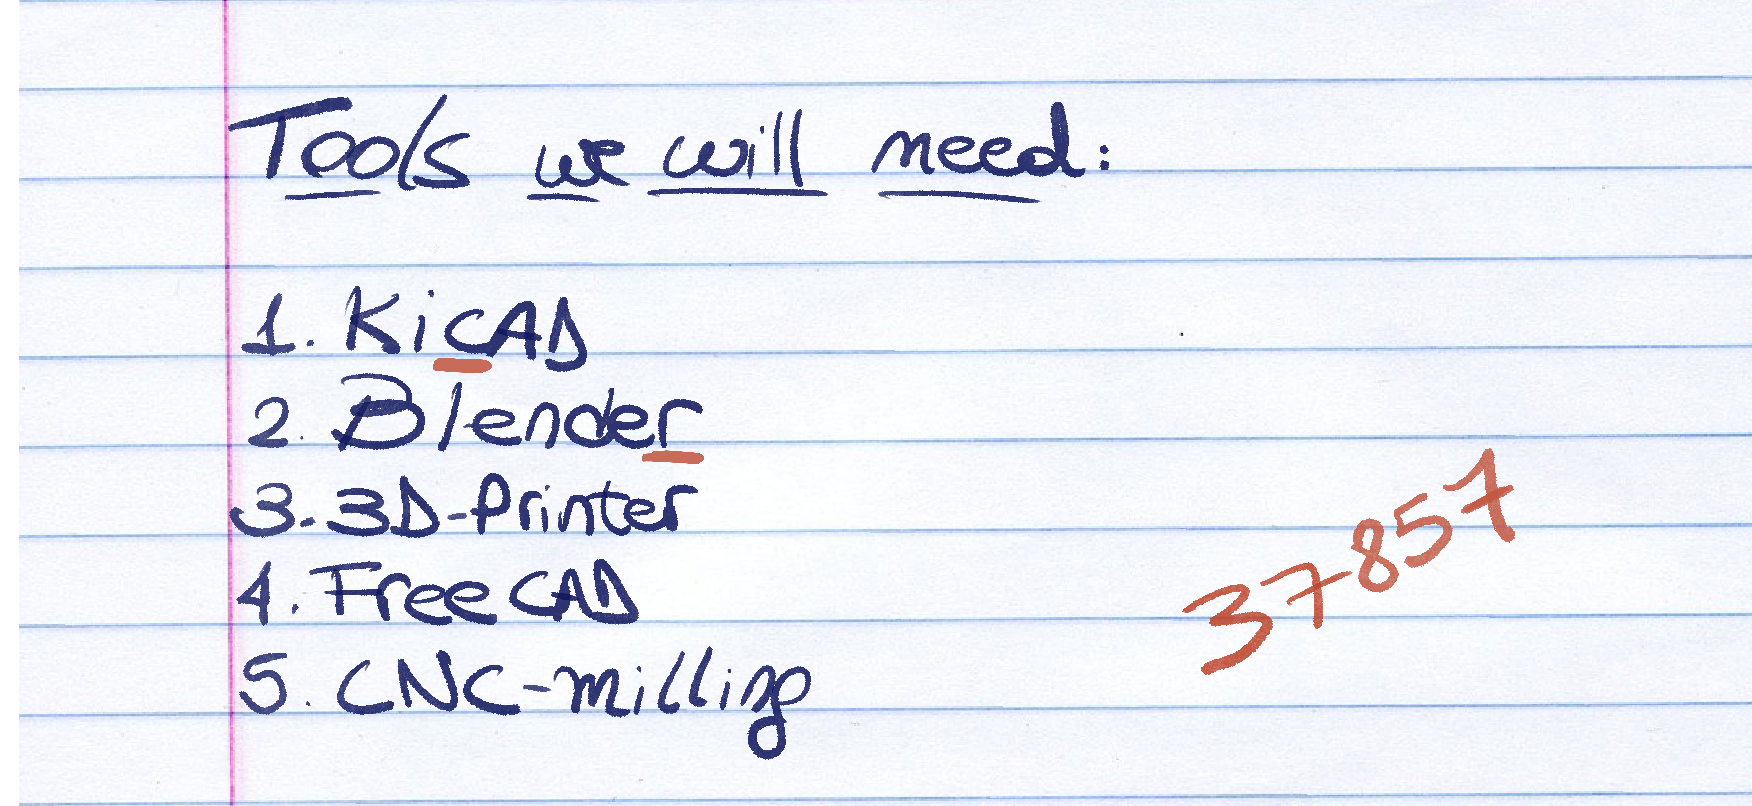 Tools we will need:
1. KiCAD
2. Blender
3. 3D-Printer
4. FreeCAD
5. CNC-milling
37857